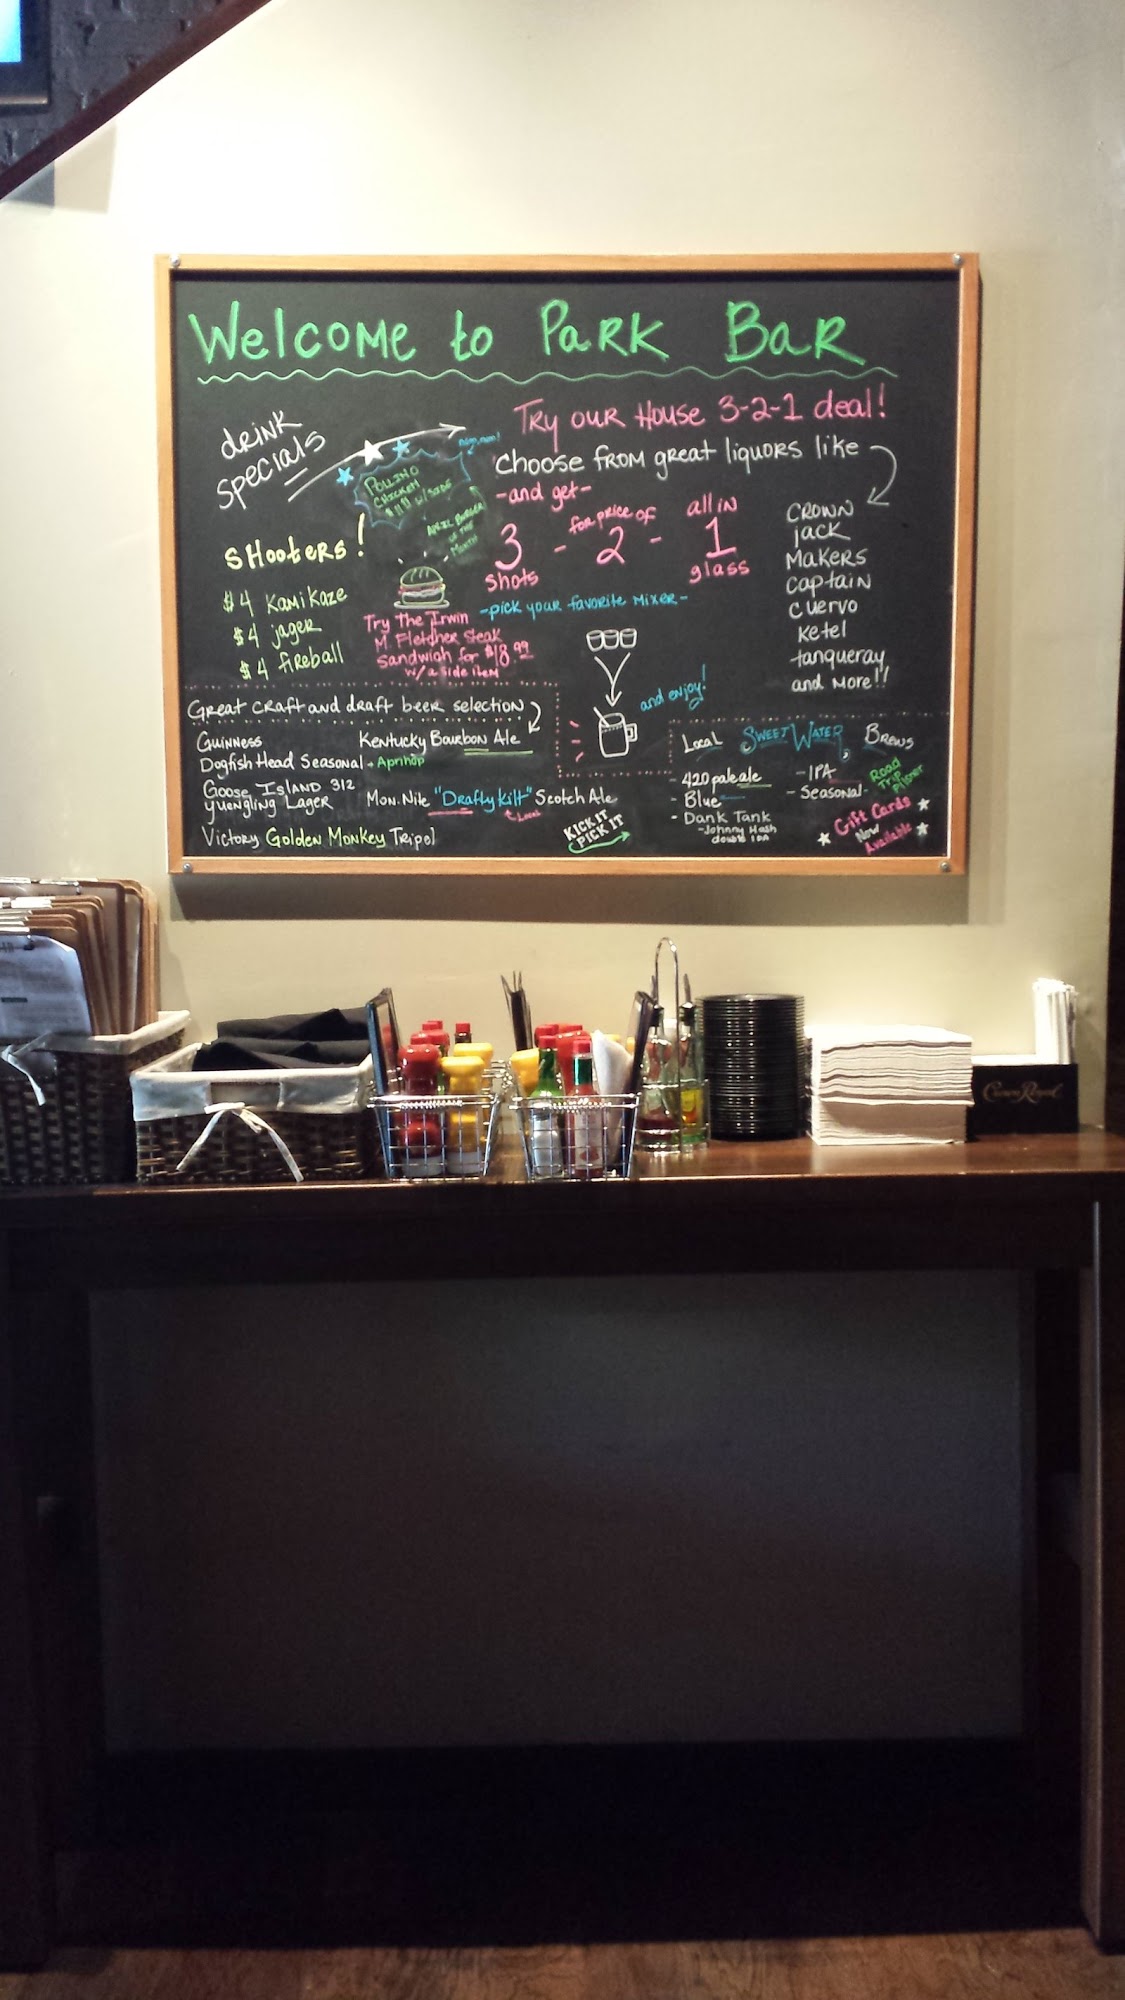 Welcome to Park Bar
drink
specials
nom nom!
Pollino
Chicken
w/side
April Burger
of the
Month
Shooters!
$4 Kamikaze
$4 jager
$4 fireball
Try The Irwin
M. Fletcher Steak
Sandwich for $18.99
w/a side item
Try our House 3-2-1 deal!
Choose from great liquors like
-and get-
3 - for price of 2 - all in 1
shots
glass
-pick your favorite mixer-
and enjoy!
Crown
jack
Makers
captain
cuervo
Ketel
tanqueray
and More!!
Great craft and draft beer selection
Guinness
Kentucky Bourbon Ale
Dogfish Head Seasonal - Aprihop
Goose Island 312
Yuengling Lager
Mon-Nite "Drafty Kilt" Scotch Ale
Local
Victory Golden Monkey Tripol
Kick it
Pick it
Local SweetWater Brews
- 420 pale ale
- Blue
- Dank Tank
-Johnny Hash
double IPA
- IPA
- Seasonal-
Road
Trip
Pilsner
Gift Cards
Now
Available
Crown Royal